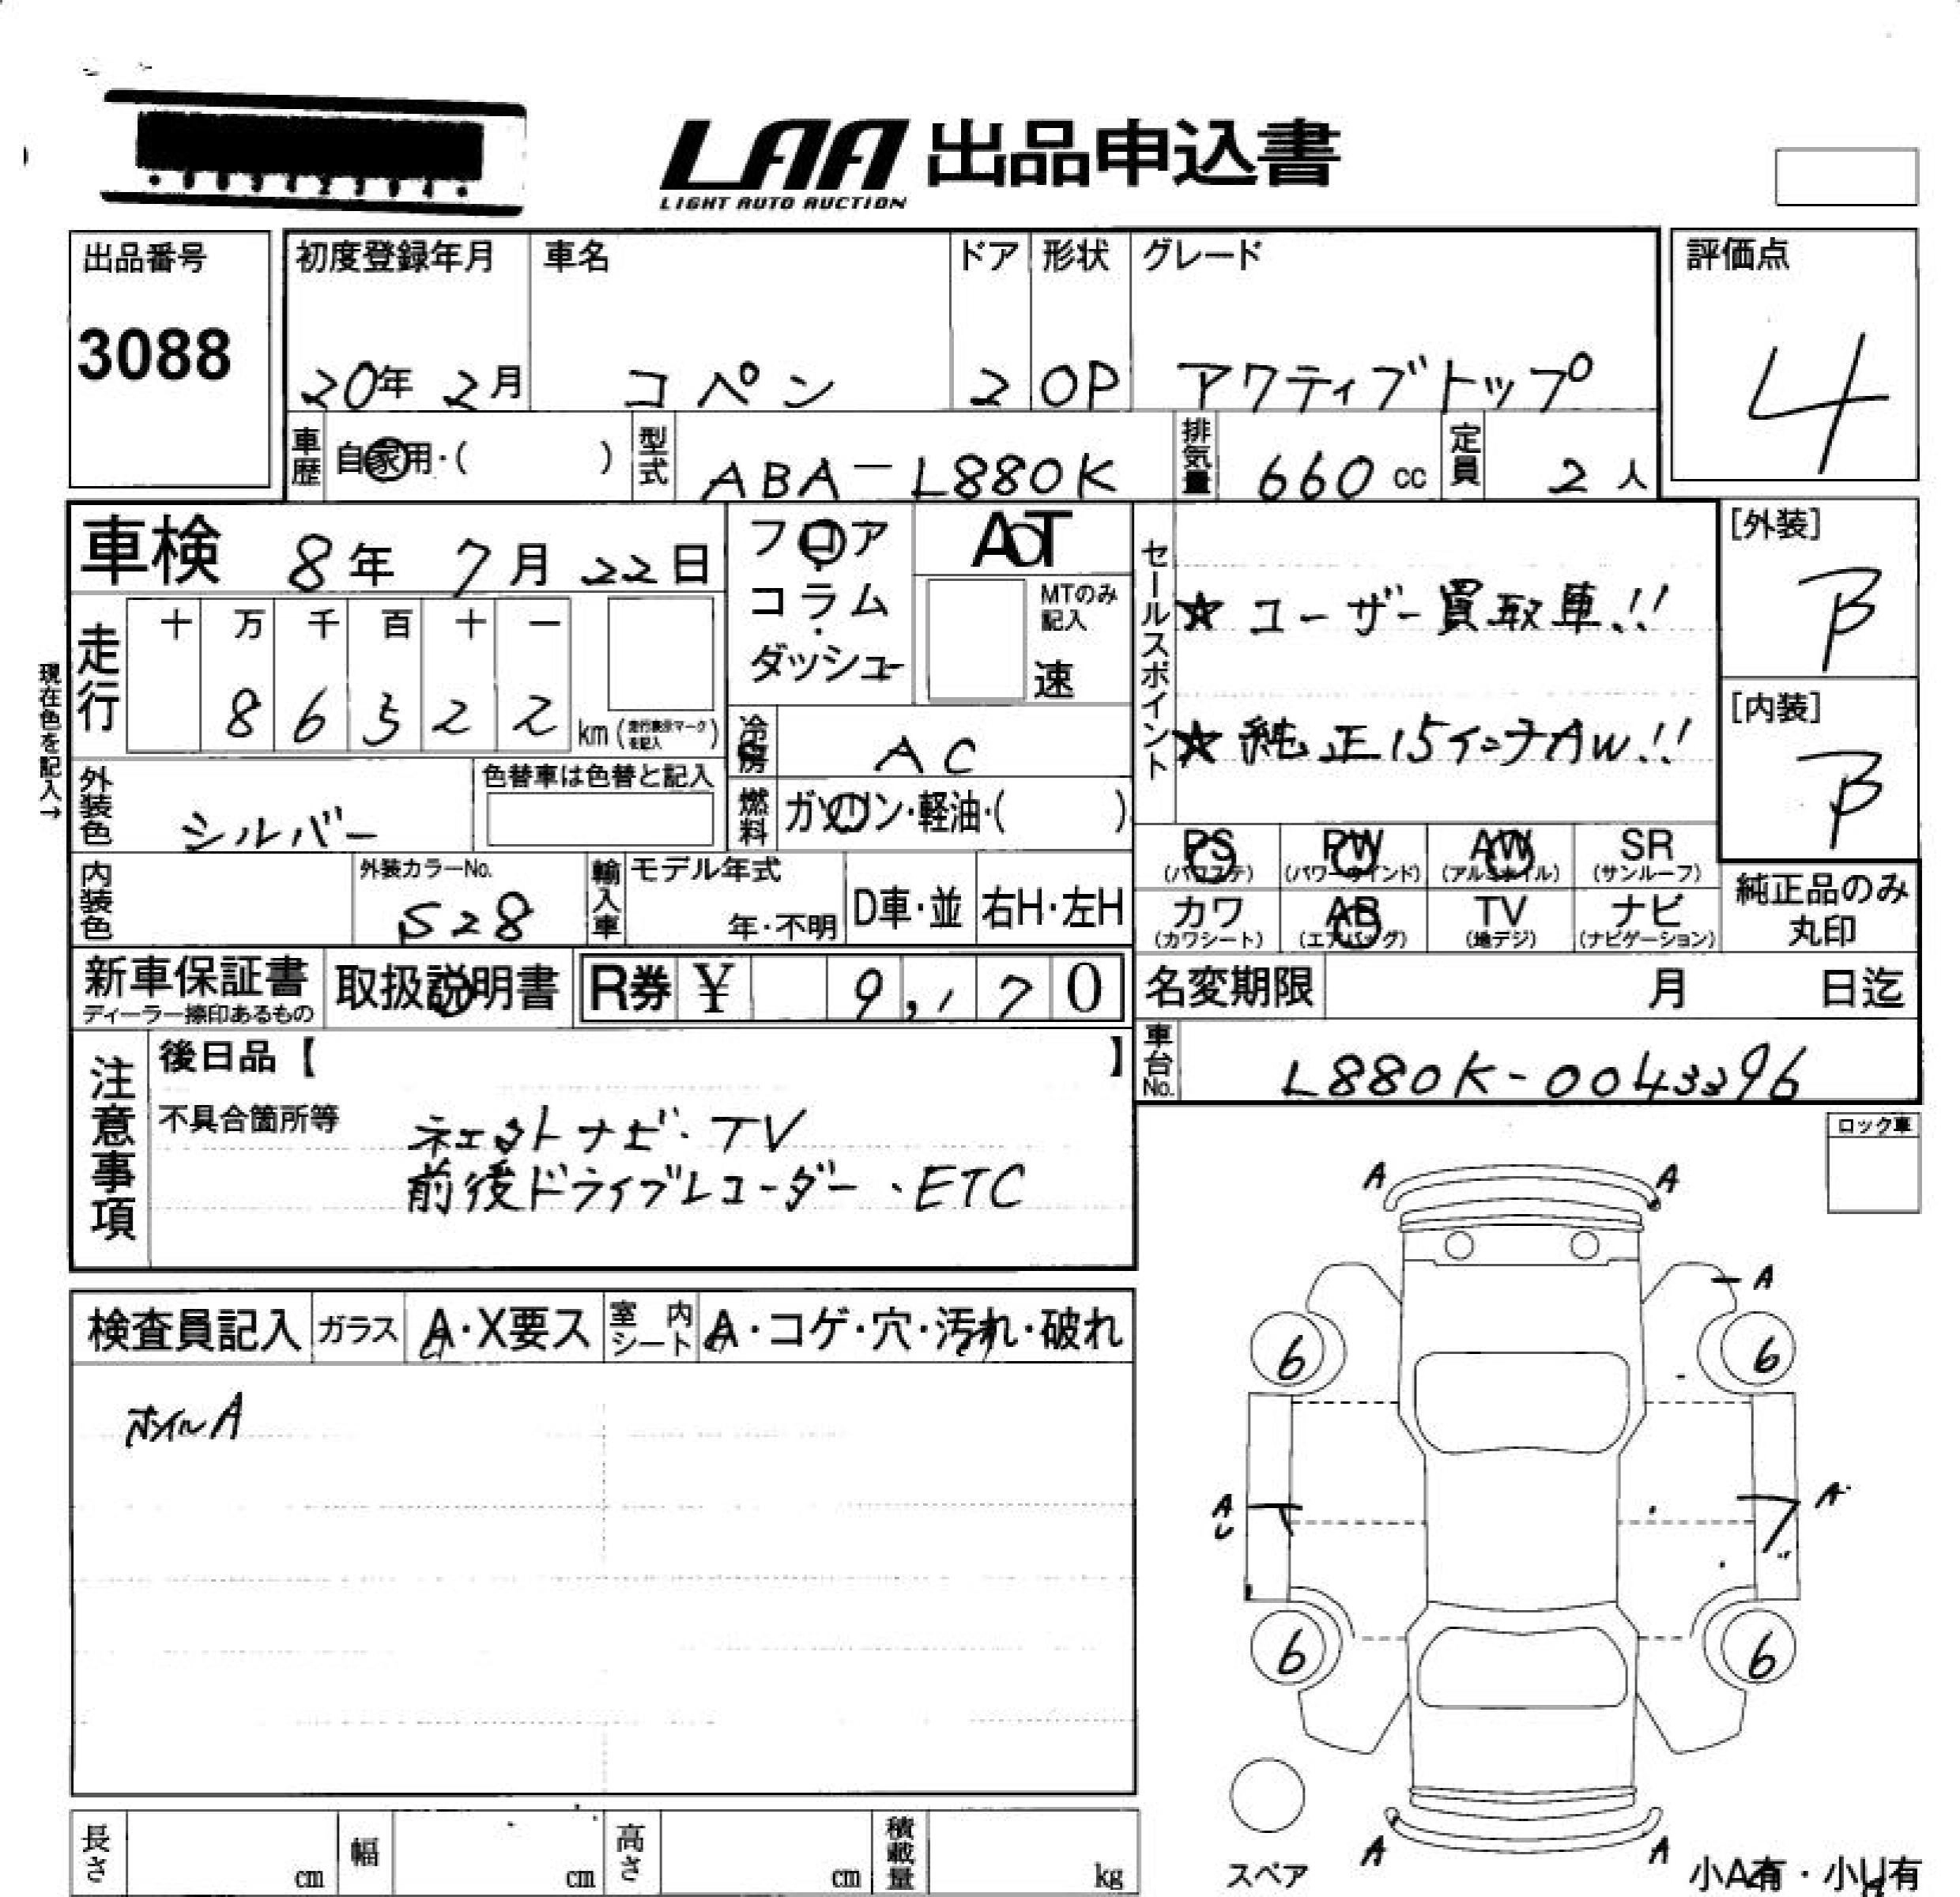 LAA 出品申込書
LIGHT AUTO AUCTION
出品番号
3088
初度登録年月 車名 ドア 形状 グレード
20年 2月 コペン 2 OP アクティブトップ
評価点
4
車歴 自家用・( ) 型式 ABA-L880K 排気量 660 cc 定員 2 人
車検 8年 7月 22日
フロア・コラム・ダッシュ
AT
MTのみ記入
速
セールスポイント
★ユーザー買取車!!
★純正15インチAW!!
[外装]
B
[内装]
B
現在色を記入→
走行 十 万 千 百 十 一
8 6 3 2 2 km (走行表示マークを記入)
冷房 AC
外装色 シルバー 色替車は色替と記入
燃料 ガソリン・軽油・( )
内装色 外装カラーNo. S28
輸入車 モデル年式 年・不明 D車・並 右H・左H
PS (パワステ) PW (パワーウインド) AW (アルミホイル) SR (サンルーフ)
カワ (カワシート) AB (エアバッグ) TV (地デジ) ナビ (ナビゲーション)
純正品のみ丸印
新車保証書 ディーラー捺印あるもの
取扱説明書 R券 ¥ 9,170
名変期限 月 日迄
車台No. L880K-0043396
注意事項
後日品【 】
不具合箇所等
ネェクトナビ・TV
前後ドライブレコーダー、ETC
ロック車
検査員記入 ガラス A・X要ス 室内シート A・コゲ・穴・汚れ・破れ
ホイルA
A A
A
6 6
A A
6 6
A A
スペア
小A有・小U有
長さ cm 幅 cm 高さ cm 積載量 kg